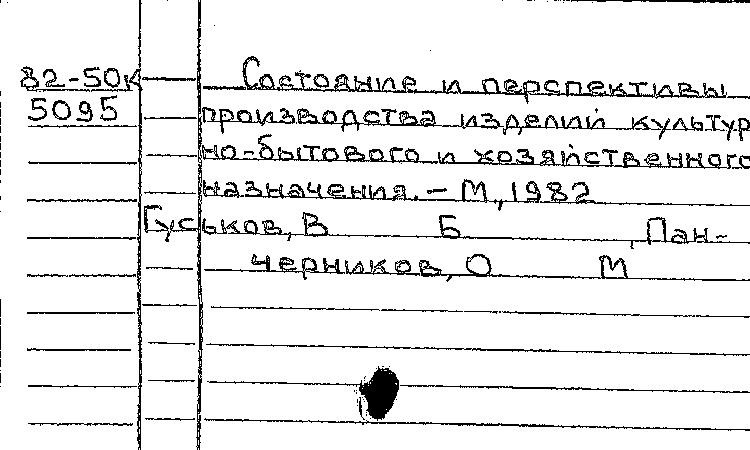 82-50к Состояние и перспективы
5095 производства изделий культур
но-бытового и хозяйственного
назначения. – М., 1982
Гуськов, В Б , Пан-
черников, О М